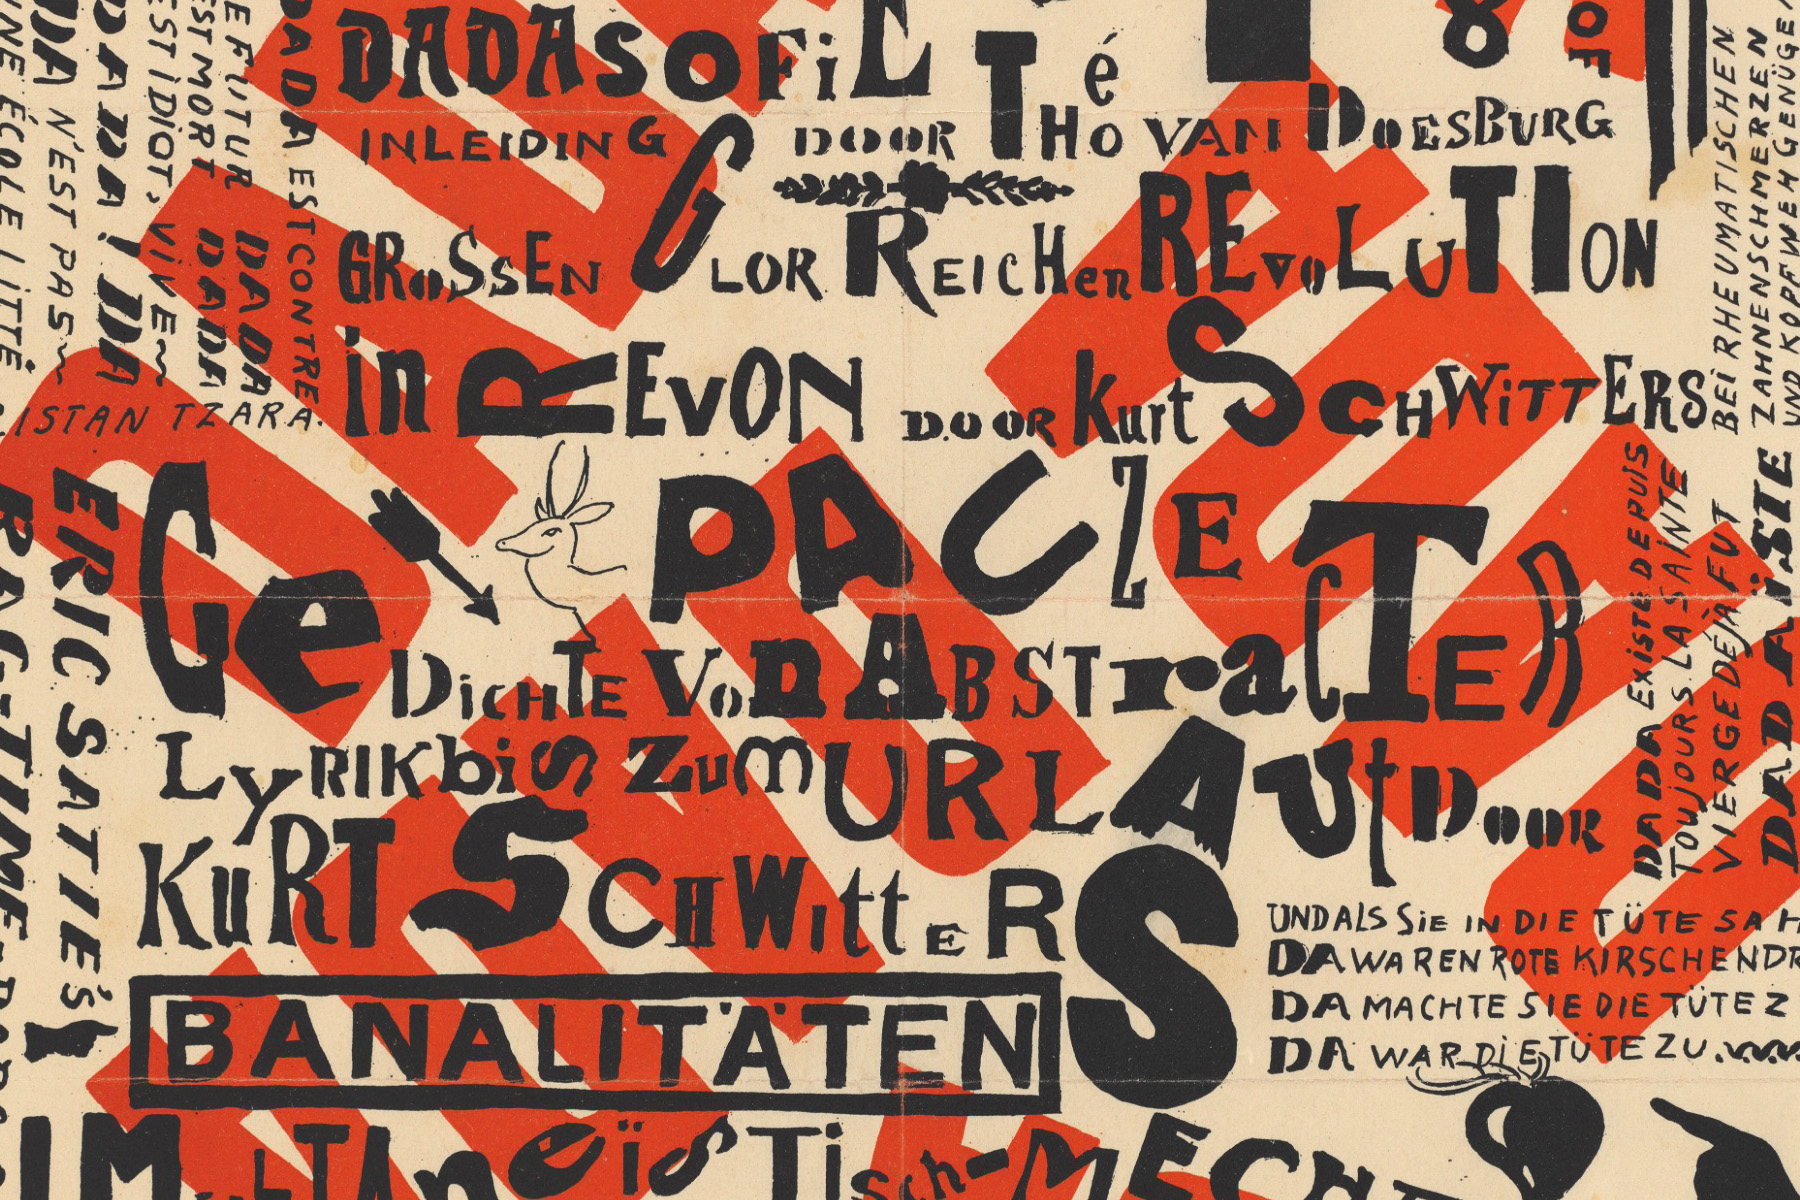 DADASOFiE
Té
8
OF
INLEIDING DOOR THO VAN DOESBURG
GROSSEN GLORREICHEN REVOLUTION
in REVON DOOR Kurt SCHWITTERS
Ge PACZE
DICHTE VON ABSTracTER
LyRIK biS ZumURLAUt DOOR
KuRT SCHWittERS
BANALITÄTEN
UND ALS SiE IN DIE TÜTE SAH
DA WAREN ROTE KIRSCHEN DR
DA MACHTE SIE DIE TÜTE Z
DA WAR DiE TÜTE ZU.
SIMULTANeïSTisch-MECHA
UNE ÉCOLE LITTÉ
DADA N'EST PAS
DADA! DADA
EST IDIOT. VIVE
EST MORT DADA
E FUTUR DADA
DADA EST CONTRE
ISTAN TZARA.
ERIC SATIE's
RAG-TIME-DADA
BEI RHEUMATISCHEN
ZAHNENSCHMERZEN
UND KOPFWEH GENÜGE
DADA EXiSTE DEPUiS
TOUJOURS LA SAiNTE
VIERGE DÉJÀ FUT
DADAÏSTE